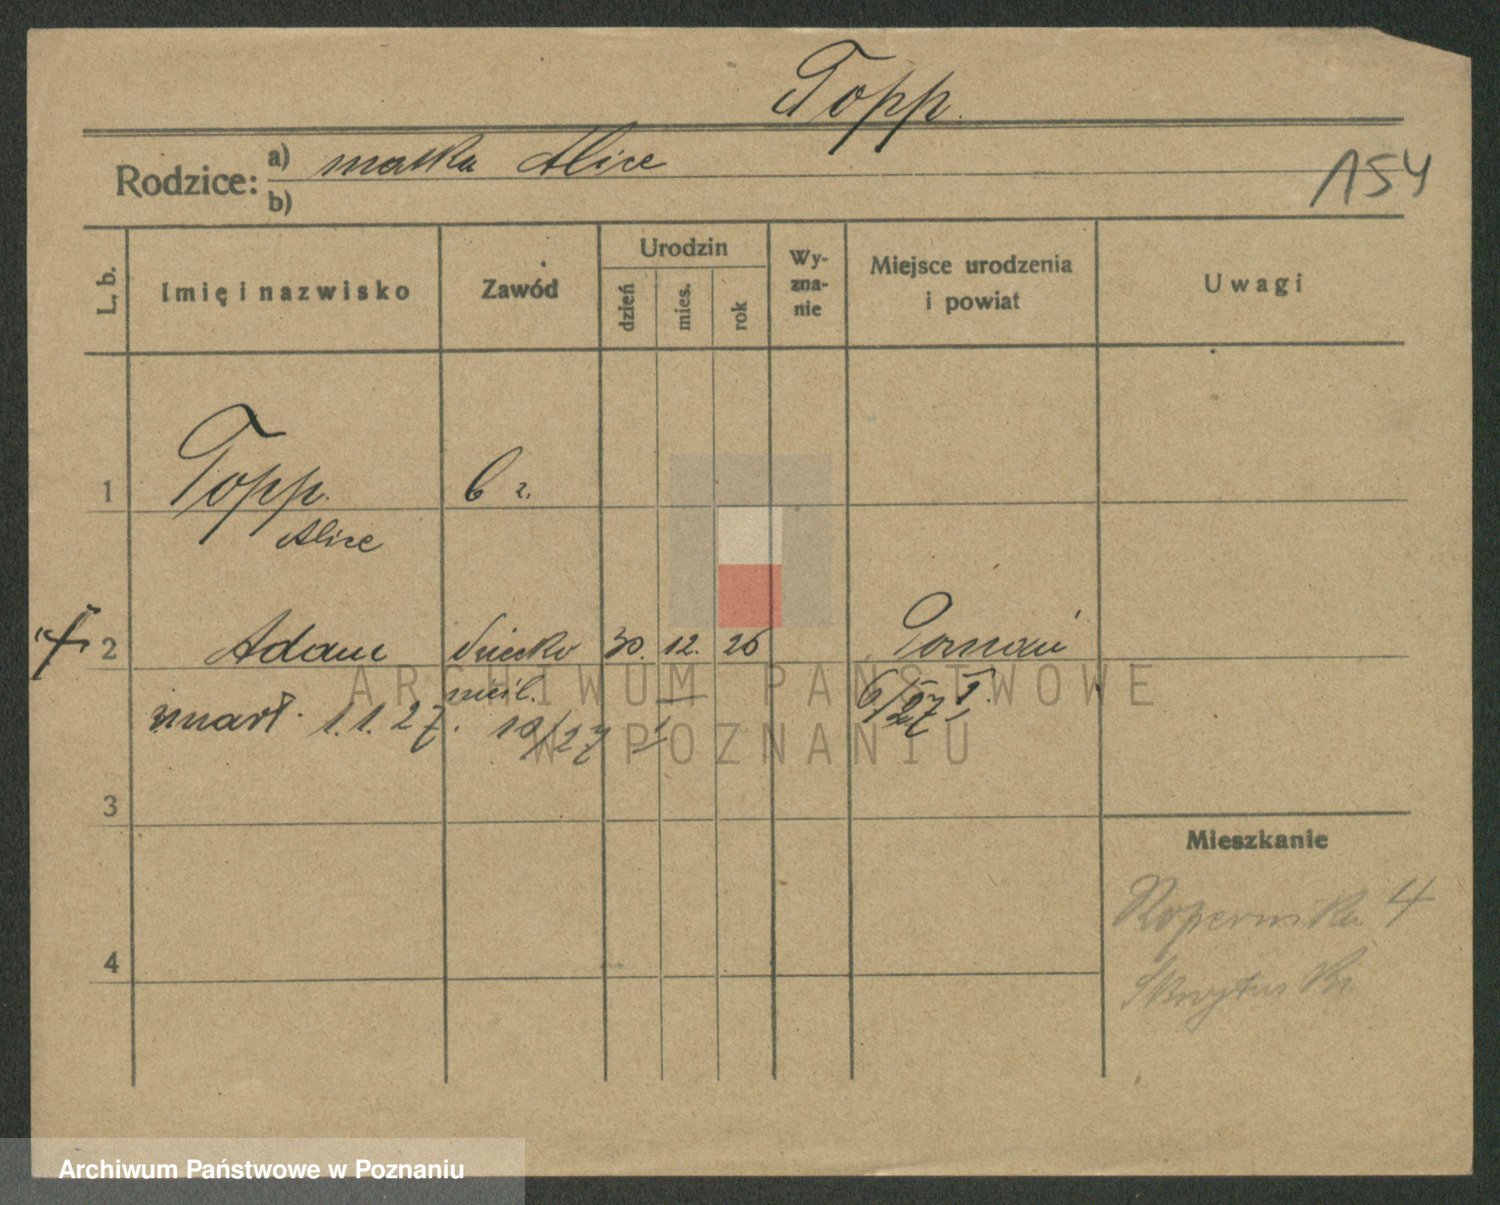 Topp.
Rodzice: a) matka Alice
b)
154
L. b.
Imię i nazwisko
Zawód
Urodzin
dzień
mies.
rok
Wy-
zna-
nie
Miejsce urodzenia
i powiat
Uwagi
1 Topp. b z.
Alice
2 Adam dziecko 30. 12. 26 Poznań
nieśl.
zmarł. 1.1.27. 10/27 I 6/27 I
3
4
Mieszkanie
Kopernika 4
ARCHIWUM PAŃSTWOWE
W POZNANIU
Archiwum Państwowe w Poznaniu